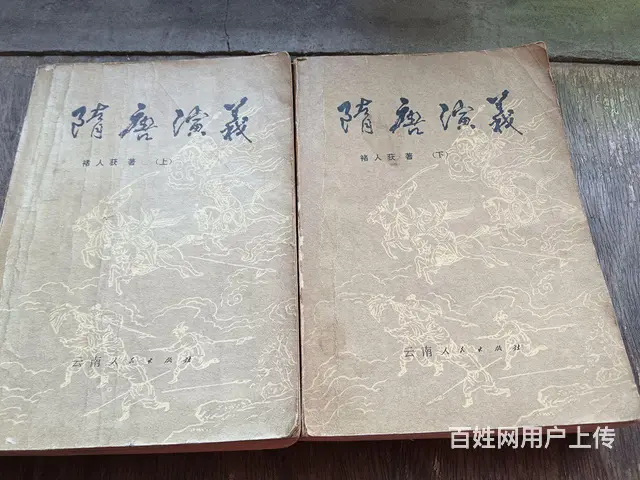 隋唐演義
褚人获著（上）
云南人民出版社
隋唐演義
褚人获著（下）
云南人民出版社
百姓网用户上传